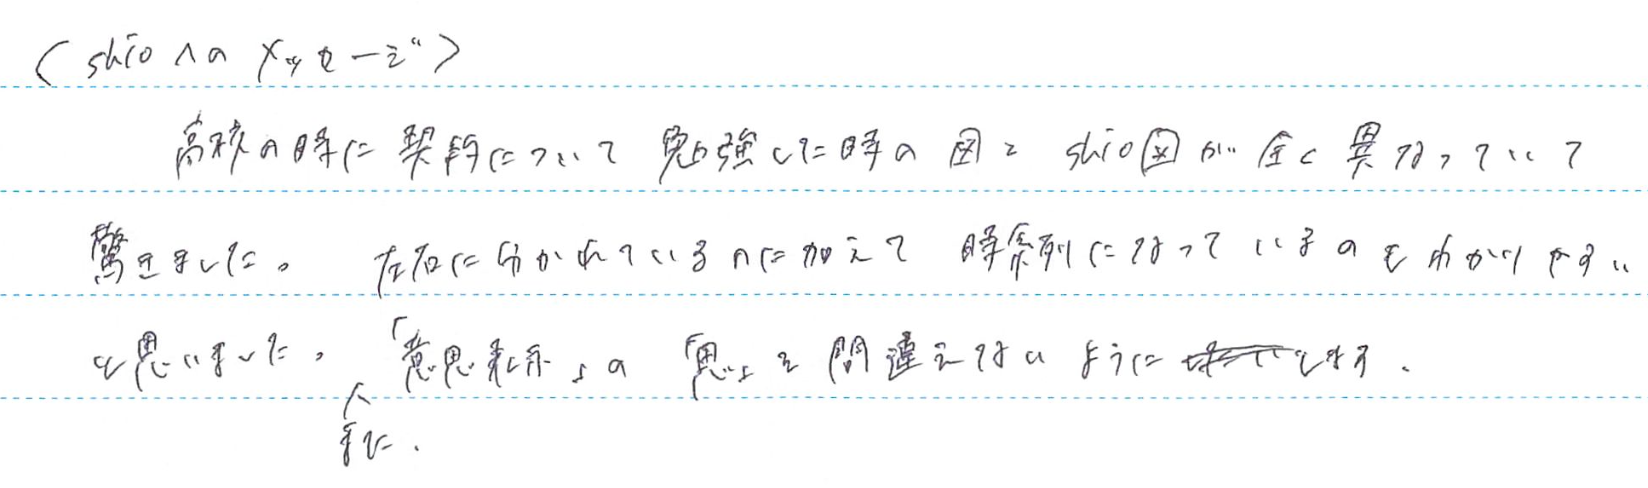 〈shioへのメッセージ〉
高校の時に契約について勉強した時の図とshio図が全く異なっていて
驚きました。左右に分かれているのに加えて時系列になっているのもわかりやすい
と思いました。「意思表示」の「思」を間違えないようにします。
また、